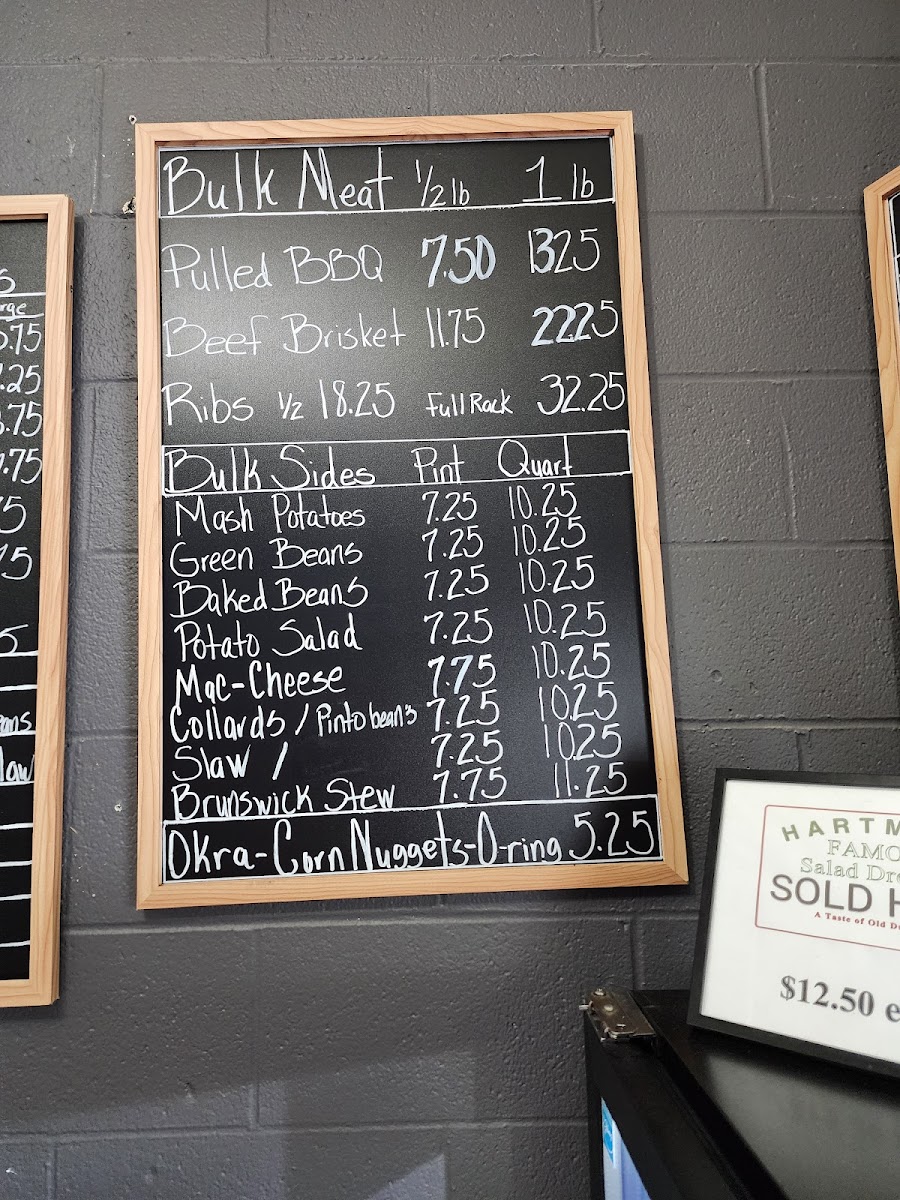 Bulk Meat 1/2 lb 1 lb
Pulled BBQ 7.50 13.25
Beef Brisket 11.75 22.25
Ribs 1/2 18.25 Full Rack 32.25
Bulk Sides Pint Quart
Mash Potatoes 7.25 10.25
Green Beans 7.25 10.25
Baked Beans 7.25 10.25
Potato Salad 7.25 10.25
Mac-Cheese 7.75 10.25
Collards / Pinto beans 7.25 10.25
Slaw / 7.25 10.25
Brunswick Stew 7.75 11.25
Okra-Corn Nuggets-O-ring 5.25
.75
.25
.75
.75
5
5
HARTM
FAMO
Salad Dre
SOLD H
A Taste of Old D
$12.50 e